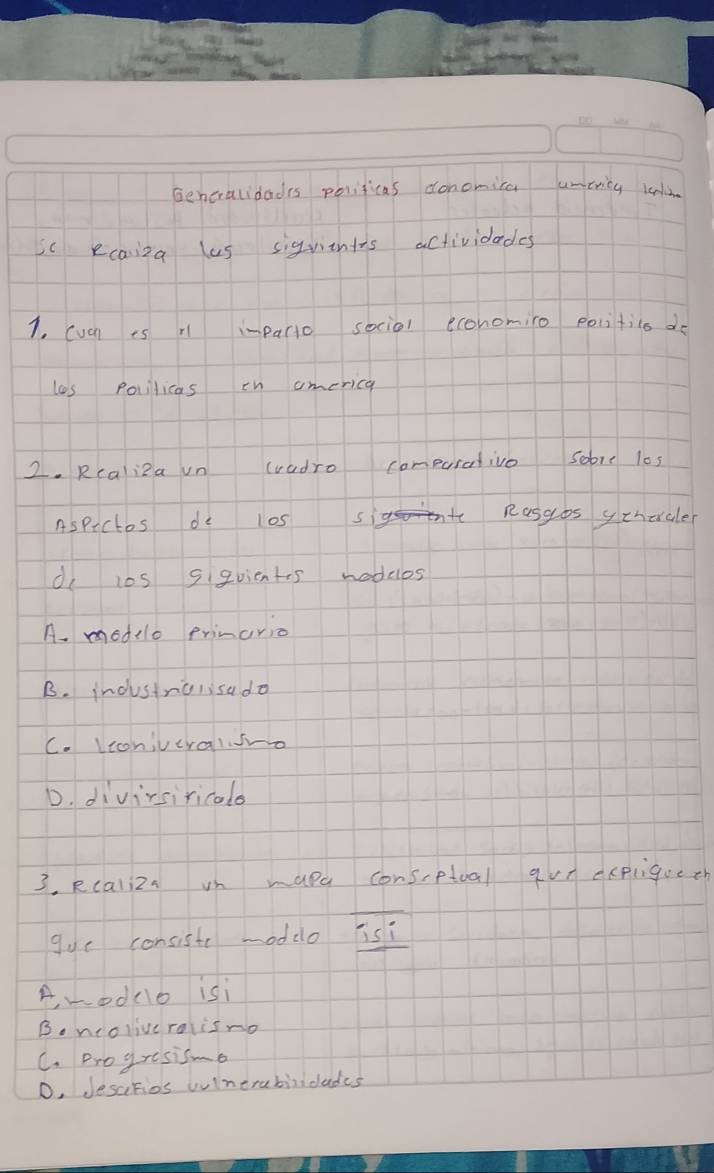 Generalidades politicas conomica america latina
se Realiza las siguientes actividades
1. cual es el impacto social economico politico de
las Politicas en america
2. Realiza un cuadro comparativo sobre los
Aspectos de los siguiente Rasgos generales
de los siguientes modelos
A. modelo primario
B. industrialisado
C. leoniveralismo
D. diversificado
3. Realiza un mapa conseptual que explique en
que consiste modelo isi
A. modelo isi
B. neoliveralismo
C. Progresismo
D. desafios vulnerabilidades